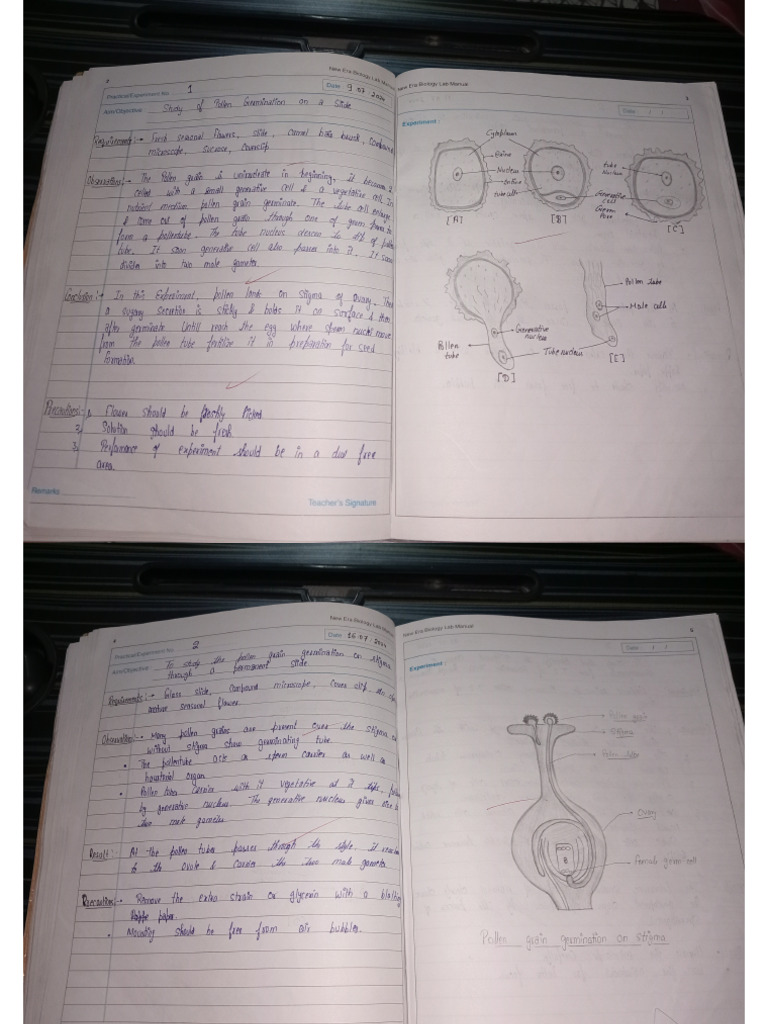 New Era Biology Lab Manual
Practical/Experiment No. 1
Date 9 07
Aim/Objective Study of Pollen Germination on a Slide
Requirements:→ Fresh seasonal flowers, slide, camel hair brush,
microscope, sucrose, Coverslip
Observation:→ The Pollen grain is uninucleate in beginning, it become 2
celled with a small generative cell & a vegetative cell. In
nutrient medium pollen grain germinate. The tube cell enlarge
& come out of pollen grain through one of germ pores to
form a pollentube. The tube nucleus to tip of pollen
tube. It soon generative cell also passes into it. It soon
divides into two male gametes.
Conclusion:→ In this Experiment, pollen lands on stigma of Ovary. Then
a sugary secretion is sticky & holds it on surface & then
after germinate. Untill reach the egg where sperm nuclei move
from the pollen tube fertilize it in preparation for seed
formation.
Precautions:→ 1. Flower should be freshly Picked
2. Solution should be fresh
3. Performance of experiment should be in a dust free
area.
Remarks
Teacher's Signature
New Era Biology Lab Manual
Date / /
Experiment :
Cytoplasm
Exine
Nucleus
Intine
tube cell
tube
Nucleus
Generative
cell
Germ
Pore
[A]
[B]
[C]
Pollen tube
Male cells
Generative
nucleus
Pollen
tube
Tube nucleus
[D]
[E]
New Era Biology Lab Manual
Practical/Experiment No. 2
Date 16 07
Aim/Objective To study the pollen grain germination on stigma
through a permanent slide
Requirements:→ Glass slide, Compound microscope, Cover slip,
seasonal flower.
Observation:→ Many pollen grains are present over the stigma
without stigma show germinating tube.
• The pollentube acts as sperm carrier as well as
organ.
• Pollen tube carries with it vegetative at it tips,
by generative nucleus. The generative nucleus gives rise to
two male gametes.
Result:→ As the pollen tube passes through the style it
to the ovule & carries the two male gametes.
Precautions:→ Remove the extra strain or glycerin with a
paper.
• Mounting should be free from air bubbles.
New Era Biology Lab Manual
Date / /
Experiment :
Pollen grain
Stigma
Pollen tube
Ovary
Female germ cell
Pollen grain germination on stigma